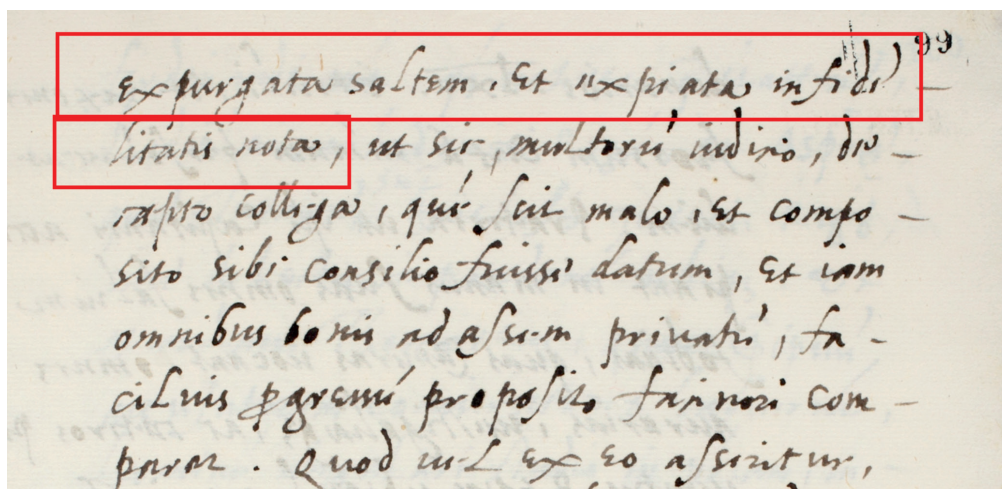 99
expurgata saltem. Et expiata infide-
litatis nota, ut sic, multorú iudicio, de-
capto collega, qué scit malo, et compo-
sito sibi Consilio fuisse datum, Et iam
omnibus bonis ad assem privatú, fa-
cilius ꝓgressú proposito facinori Com-
parat. Quod vel ex eo asseritur,